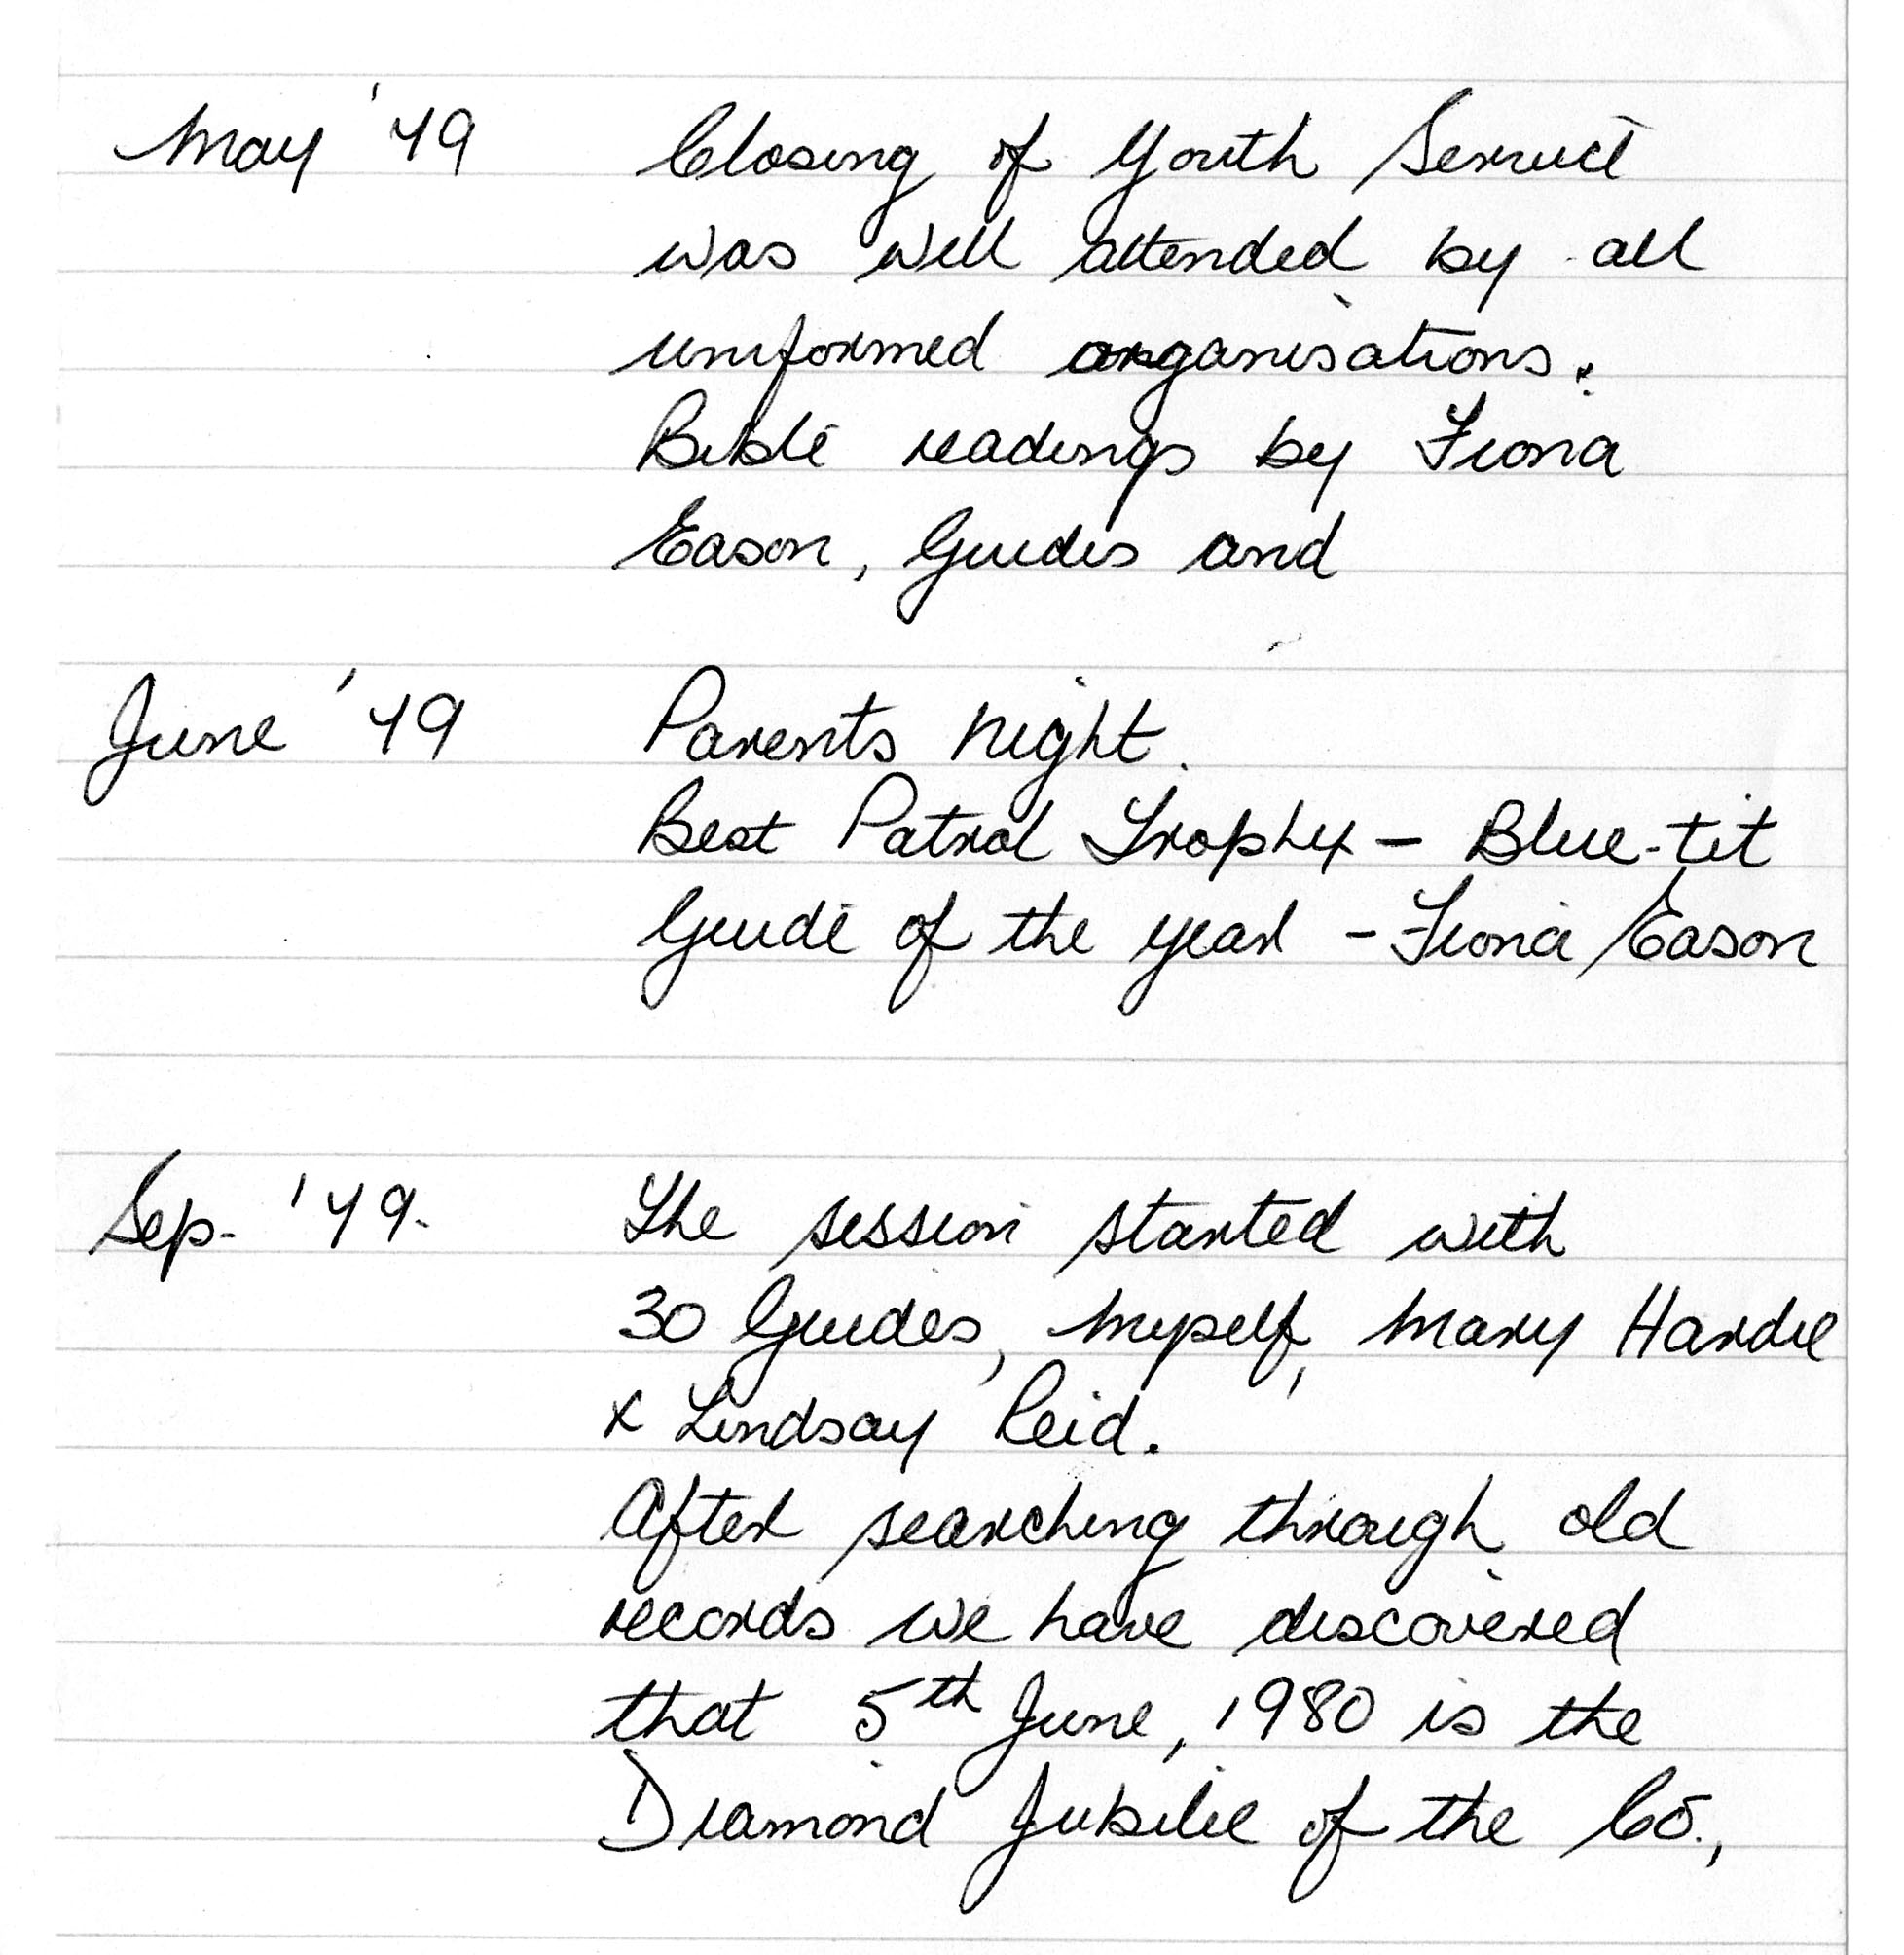 May '79 Closing of Youth Service
was well attended by all
uniformed organisations.
Bible readings by Fiona
Eason, Guides and
June '79 Parents night.
Best Patrol Trophy - Blue-tit
Guide of the year - Fiona Eason
Sep. '79. The session started with
30 Guides, myself, Mary Hardie
& Lindsay Reid.
After searching through old
records we have discovered
that 5th June, 1980 is the
Diamond Jubilee of the Co.,